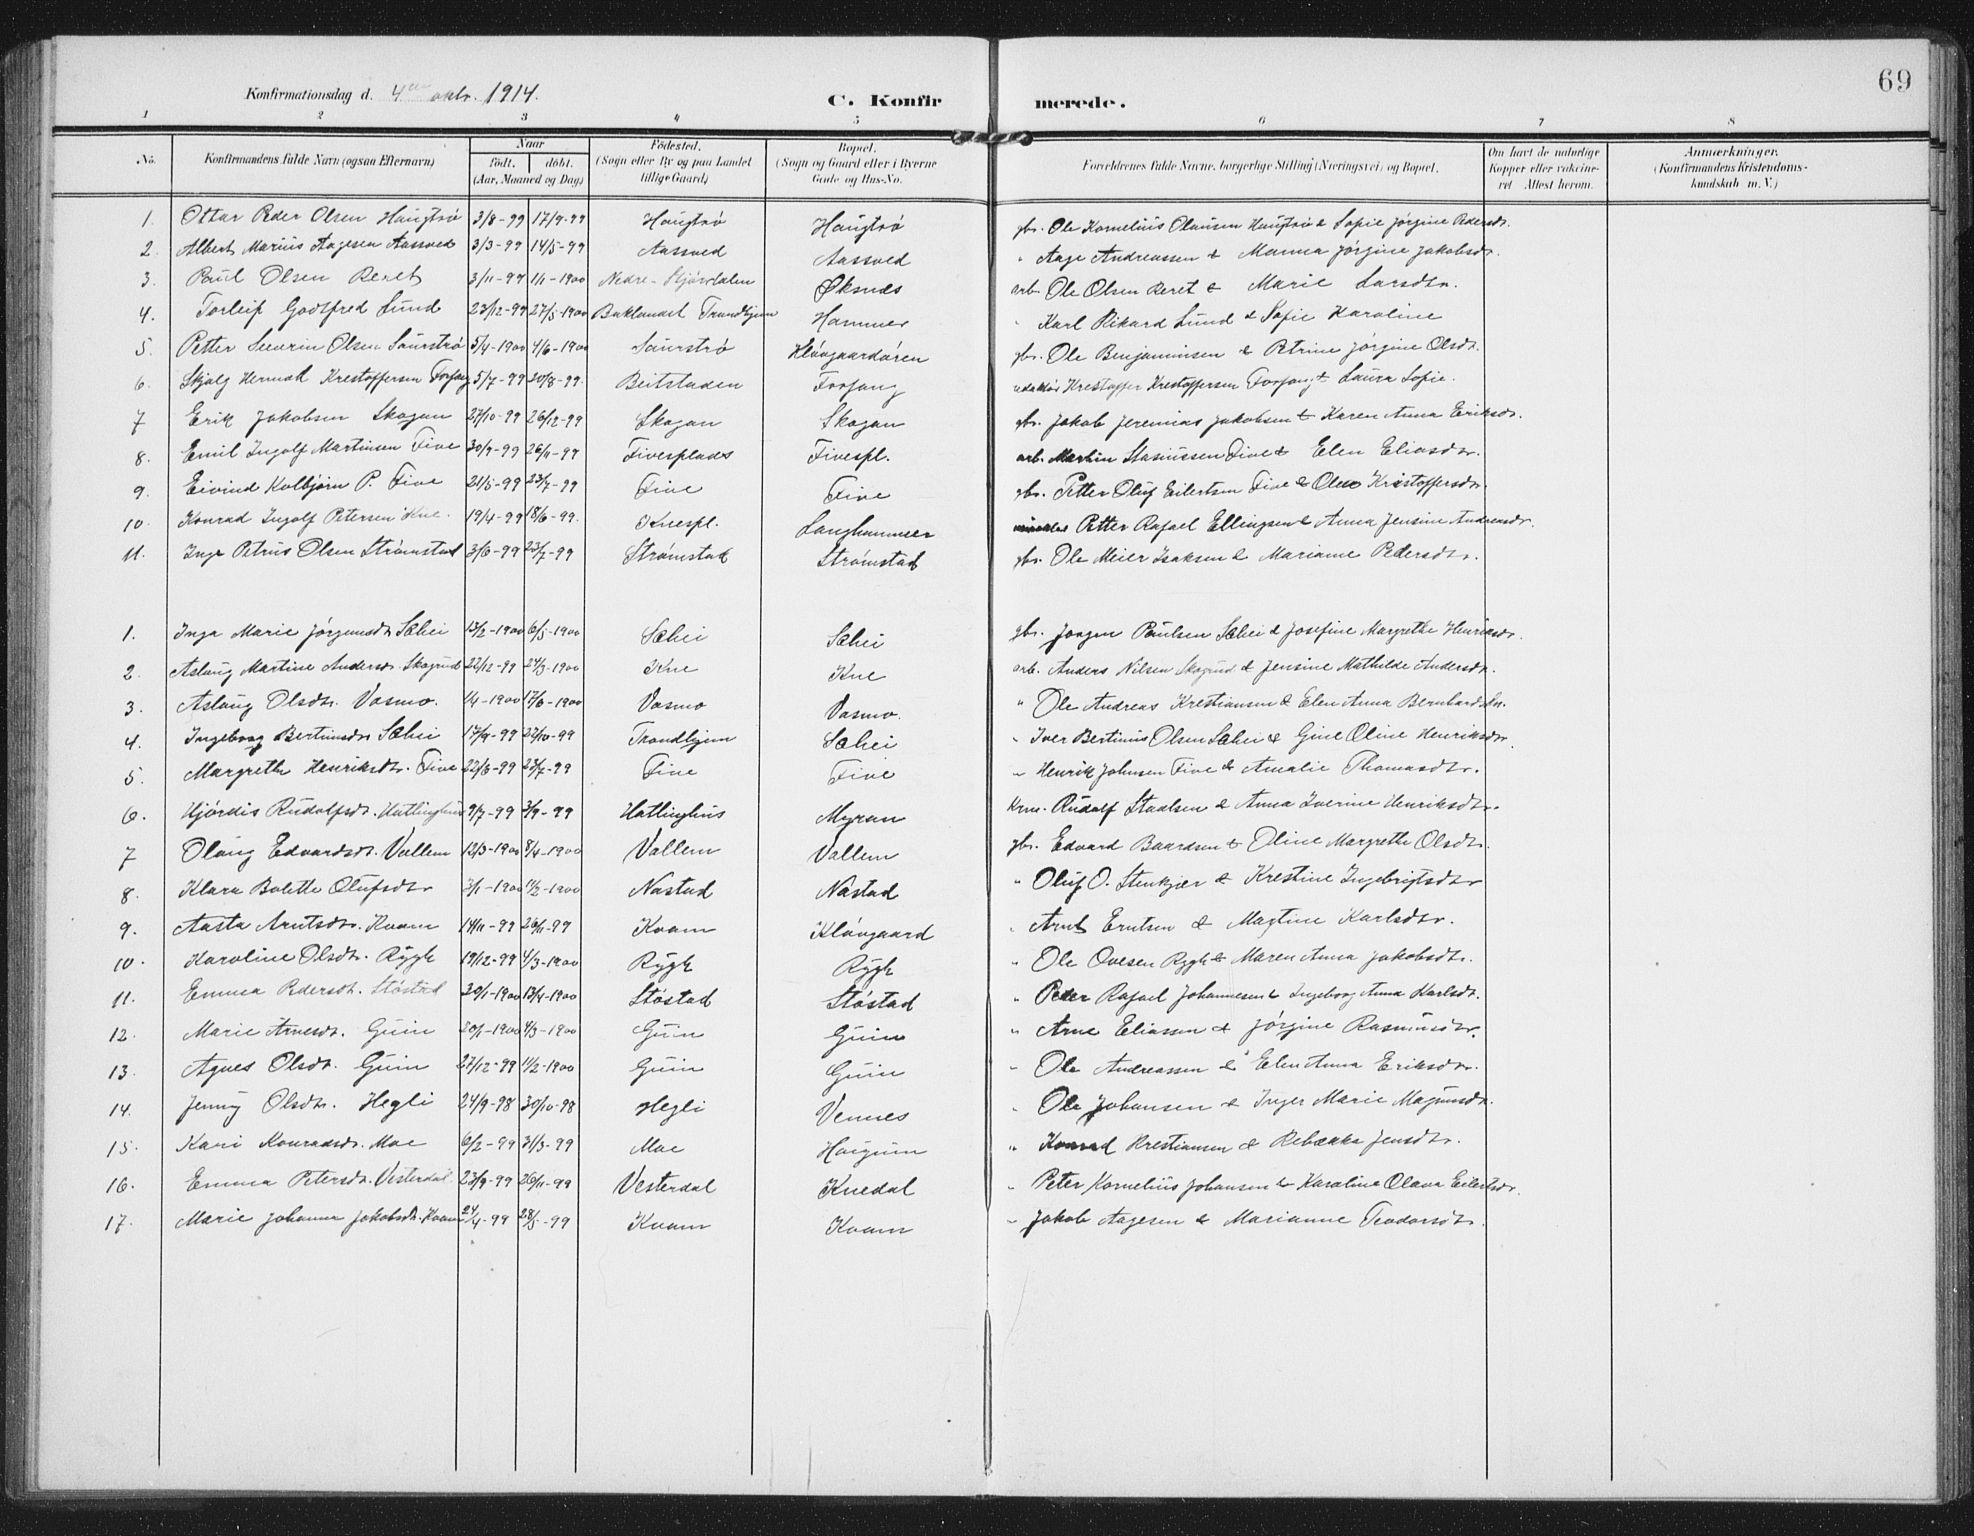 69
Konfirmationsdag d. 4de oktr. 1914.
C. Konfirmerede.
1 2 3 4 5 6 7 8
No. Konfirmandens fulde Navn (ogsaa Efternavn) Naar födt. döbt. (Aar, Maaned og Dag) Födested. (Sogn eller By og paa Landet tillige Gaard) Bopæl. (Sogn og Gaard eller i Byerne Gade og Hus-No. Forældrenes fulde Navne, borgerlige Stilling (Næringsvei) og Bopæl. Om havt de naturlige Kopper eller vaccineret. Attest herom. Anmærkninger. (Konfirmandens Kristendomskundskab m. V.)
1. Ottar Peder Olsen Haugtrø 3/8-99 17/9-99 Haugtrø Haugtrø gbr. Ole Kornelius Olausen Haugtrø & Sofie Jørgine Pedersdr.
2. Albert Marius Aagesen Aassved 3/3-99 14/5-99 Aassved Aassved " Aage Andreassen & Manna Jørgine Jakobsdr.
3. Paul Olsen Reret 3/11-99 1/1-1900 Nedre-Stjørdalen Øksnes arb. Ole Olsen Reret & Marie Larsdtr.
4. Torleif Godtfred Lund 23/12-99 27/5-1900 Baklandet Trondhjem Hammer " Karl Rikard Lund & Sofie Karoline
5. Petter Severin Olsen Saurstrø 5/4-1900 4/6-1900 Saurstrø Kløvgaardøren gbr. Ole Benjaminsen & Petrine Jørgine Olsdr.
6. Skjalg Hermod Krestoffersen Forfang 5/7-99 20/8-99. Beitstaden Forfang Krestoffer Krestoffersen Forfang & Laura Sofie.
7 Erik Jakobsen Skogan 27/10-99 26/12-99 Skogan Skogan gbr. Jakob Jeremias Jakobsen & Karen Anna Eriksdr.
8. Emil Ingolf Martinsen Five 30/9-99 26/11-99 Fiveplads Fivespl. arb. Martin Stasiussen Five & Elen Eliasdr.
9. Eivind Kolbjørn P. Five 21/5-99 23/7-99 Five Five gbr. Petter Oluf Eilertsen Five & Oline Kristoffersdr.
10. Konrad Ingolf Petersen Kne. 19/4-99 18/6-99. Knespl. Langhammer Petter Rafael Ellingsen & Anna Jensine Andreasdr.
11. Inge Petrus Olsen Strømstad 3/6-99 23/7-99 Strømstad Strømstad gbr. Ole Meier Isaksen & Marianne Pedersdr.
1. Inga Marie Jørgensdr Sæhei 13/2-1900 6/5-1900 Sæhei Sæhei gbr. Jørgen Paulsen Sæhei & Josefine Margrethe Henriksdr.
2. Aslaug Martine Andersdr. Skogrud 22/12-99 24/3-1900 Kne Kne arb. Anders Nilsen Skogrud & Jensine Mathilde Andersdr.
3. Aslaug Olsdtr. Vasmo. 1/4-1900 17/6-1900 Vasmo Vasmo. " Ole Andreas Krestiansen & Elen Anna Bernhardsdr.
4. Ingeborg Bertinusdr Sæhei 17/9-99 22/10-99 Trondhjem Sæhei " Iver Bertinus Olsen Sæhei & Gine Oline Henriksdr.
5. Margrethe Henriksdt. Five 22/6-99 23/7-99 Five Five " Henrik Johnsen Five & Amalie Thomasdtr.
6. Hjørdis Rudolfsdt. Hatlinghus 9/7-99 3/9-99 Hatlinghus Myran Krm. Rudolf Staalsen & Anna Iverine Henriksdtr.
7 Olaug Edvardsdt. Vollem 12/3-1900 8/4-1900 Vollem Vollem gbr. Edvard Baardsen & Oline Margrethe Olsdt.
8. Klara Bolette Olufsdtr 3/1-1900 11/2-1900 Nøstad Nøstad " Oluf O. Stenkjær & Krestine Ingebrigtsdtr
9. Aasta Arntsdtr. Kvam 14/11-99 26/11-99 Kvam Kløvgaard " Arnt Erntsen & Martine Karlsdtr.
10. Karoline Olsdt. Rygh 19/12-99 4/3-1900 Rygh Rygh " Ole Ovesen Rygh & Maren Anna Jakobsdt.
11. Emma Pedersdt. Støstad 20/1-1900 13/4-1900 Støstad Støstad " Peder Rafael Johannesen & Ingeborg Anna Karlsdt.
12. Marie Arnesdt. Guin 20/1-1900 4/3-1900 Guin Guin " Arne Eliassen & Jørgine Rasmusdtr.
13. Agnes Olsdt. Guin 27/12-99 11/2-1900 Guin Guin " Ole Andreassen & Elen Anna Eriksdtr.
14. Jenny Olsdtr. Hegli 24/9-98 30/10-98 Hegli Vennes " Ole Johansen & Inger Marie Magnusdt.
15. Kari Konradsdt. Moe 6/2-99 31/3-99 Moe Haugum " Konrad Krestiansen & Rebekka Jensdtr.
16. Emma Petersdt. Vesterdal 23/9-99 26/11-99 Vesterdal Knedal " Peter Kornelius Johansen & Karoline Olava Eilertsdr.
17. Marie Johanna Jakobsdt. Kvam 24/4-99 28/5-99 Kvam Kvam " Jakob Aagesen & Marianne Teodorsdt.